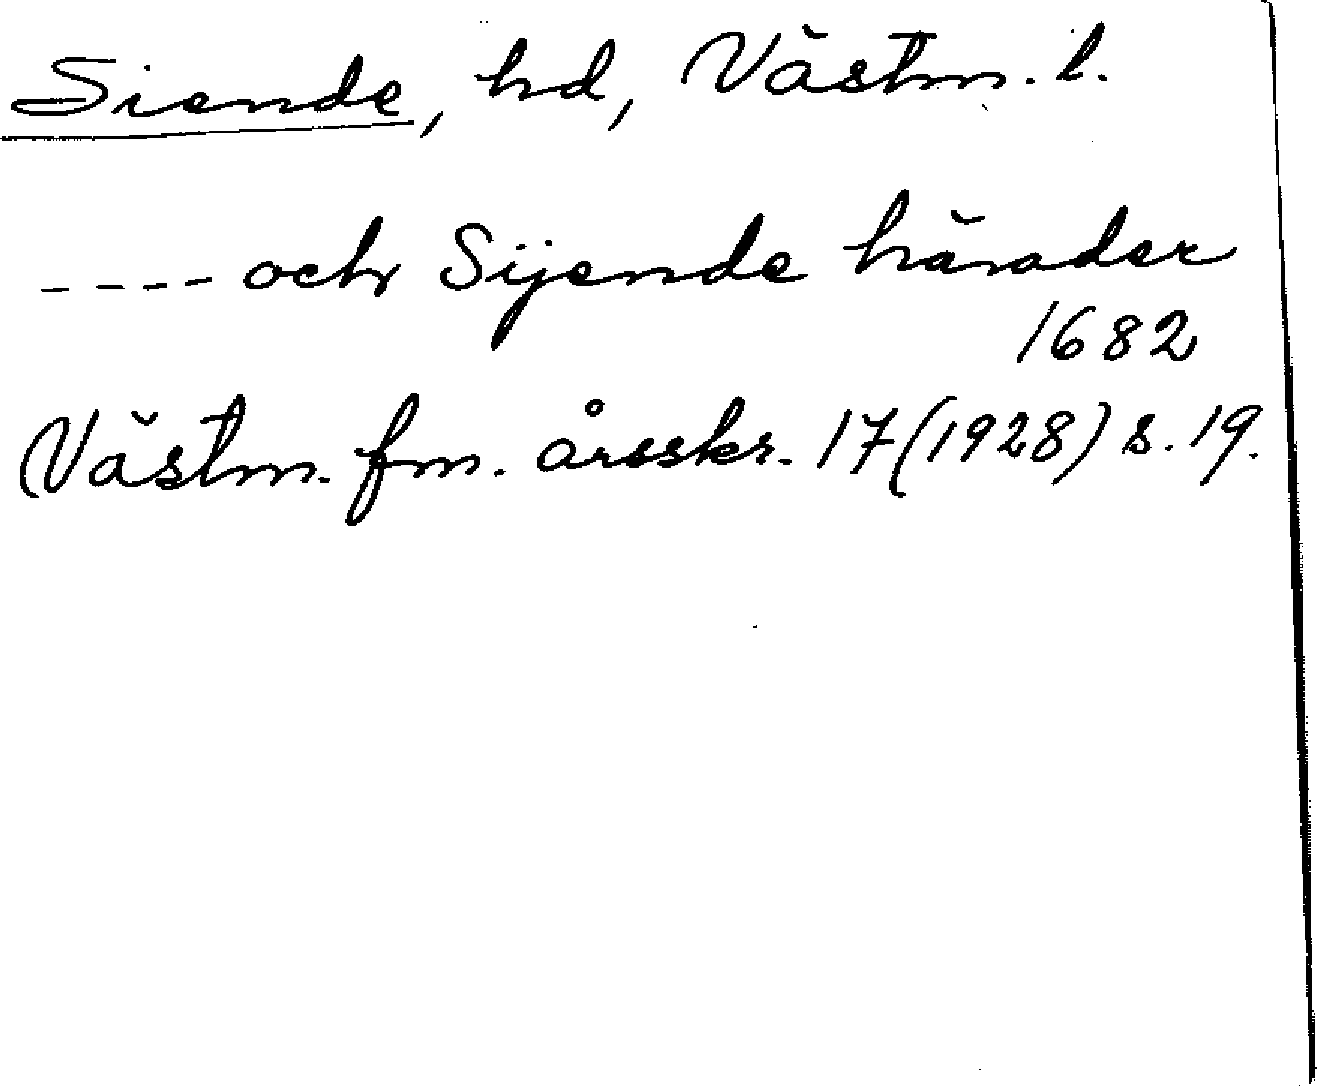 Siende, hd, Västm. l.
---- och Sijende härader
1682
Västm. fm. årsskr. 17(1928) s. 19.